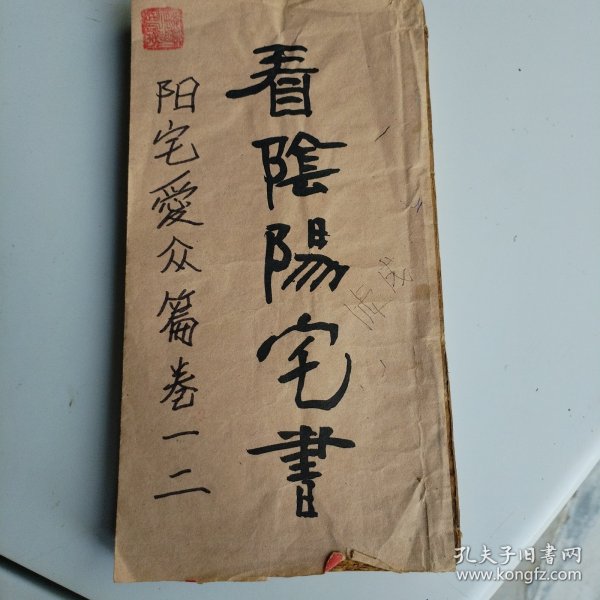 看陰陽宅書
阳宅愛众篇卷一二
孔夫子旧书网
www.kongfz.com